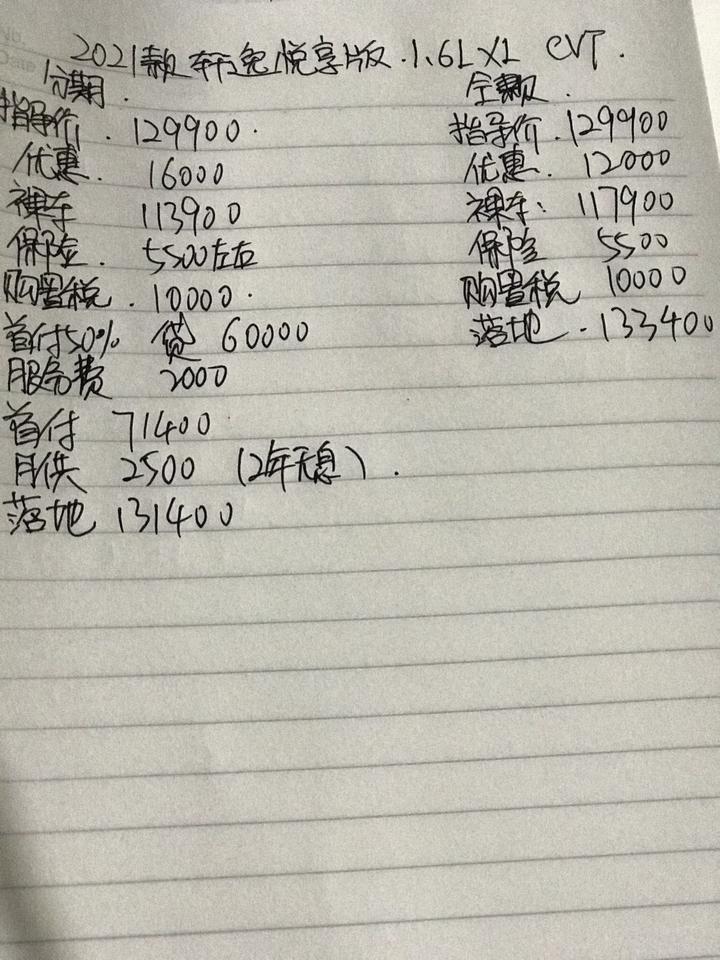 2021款轩逸悦享版.1.6L XL CVT.
分期.
指导价.129900.
优惠.16000
裸车 113900
保险.5500左右
购置税.10000.
首付50% 贷60000
服务费 2000
首付 71400
月供 2500 (2年无息).
落地 131400
全款.
指导价.129900
优惠.12000
裸车:117900
保险 5500
购置税 10000
落地.133400